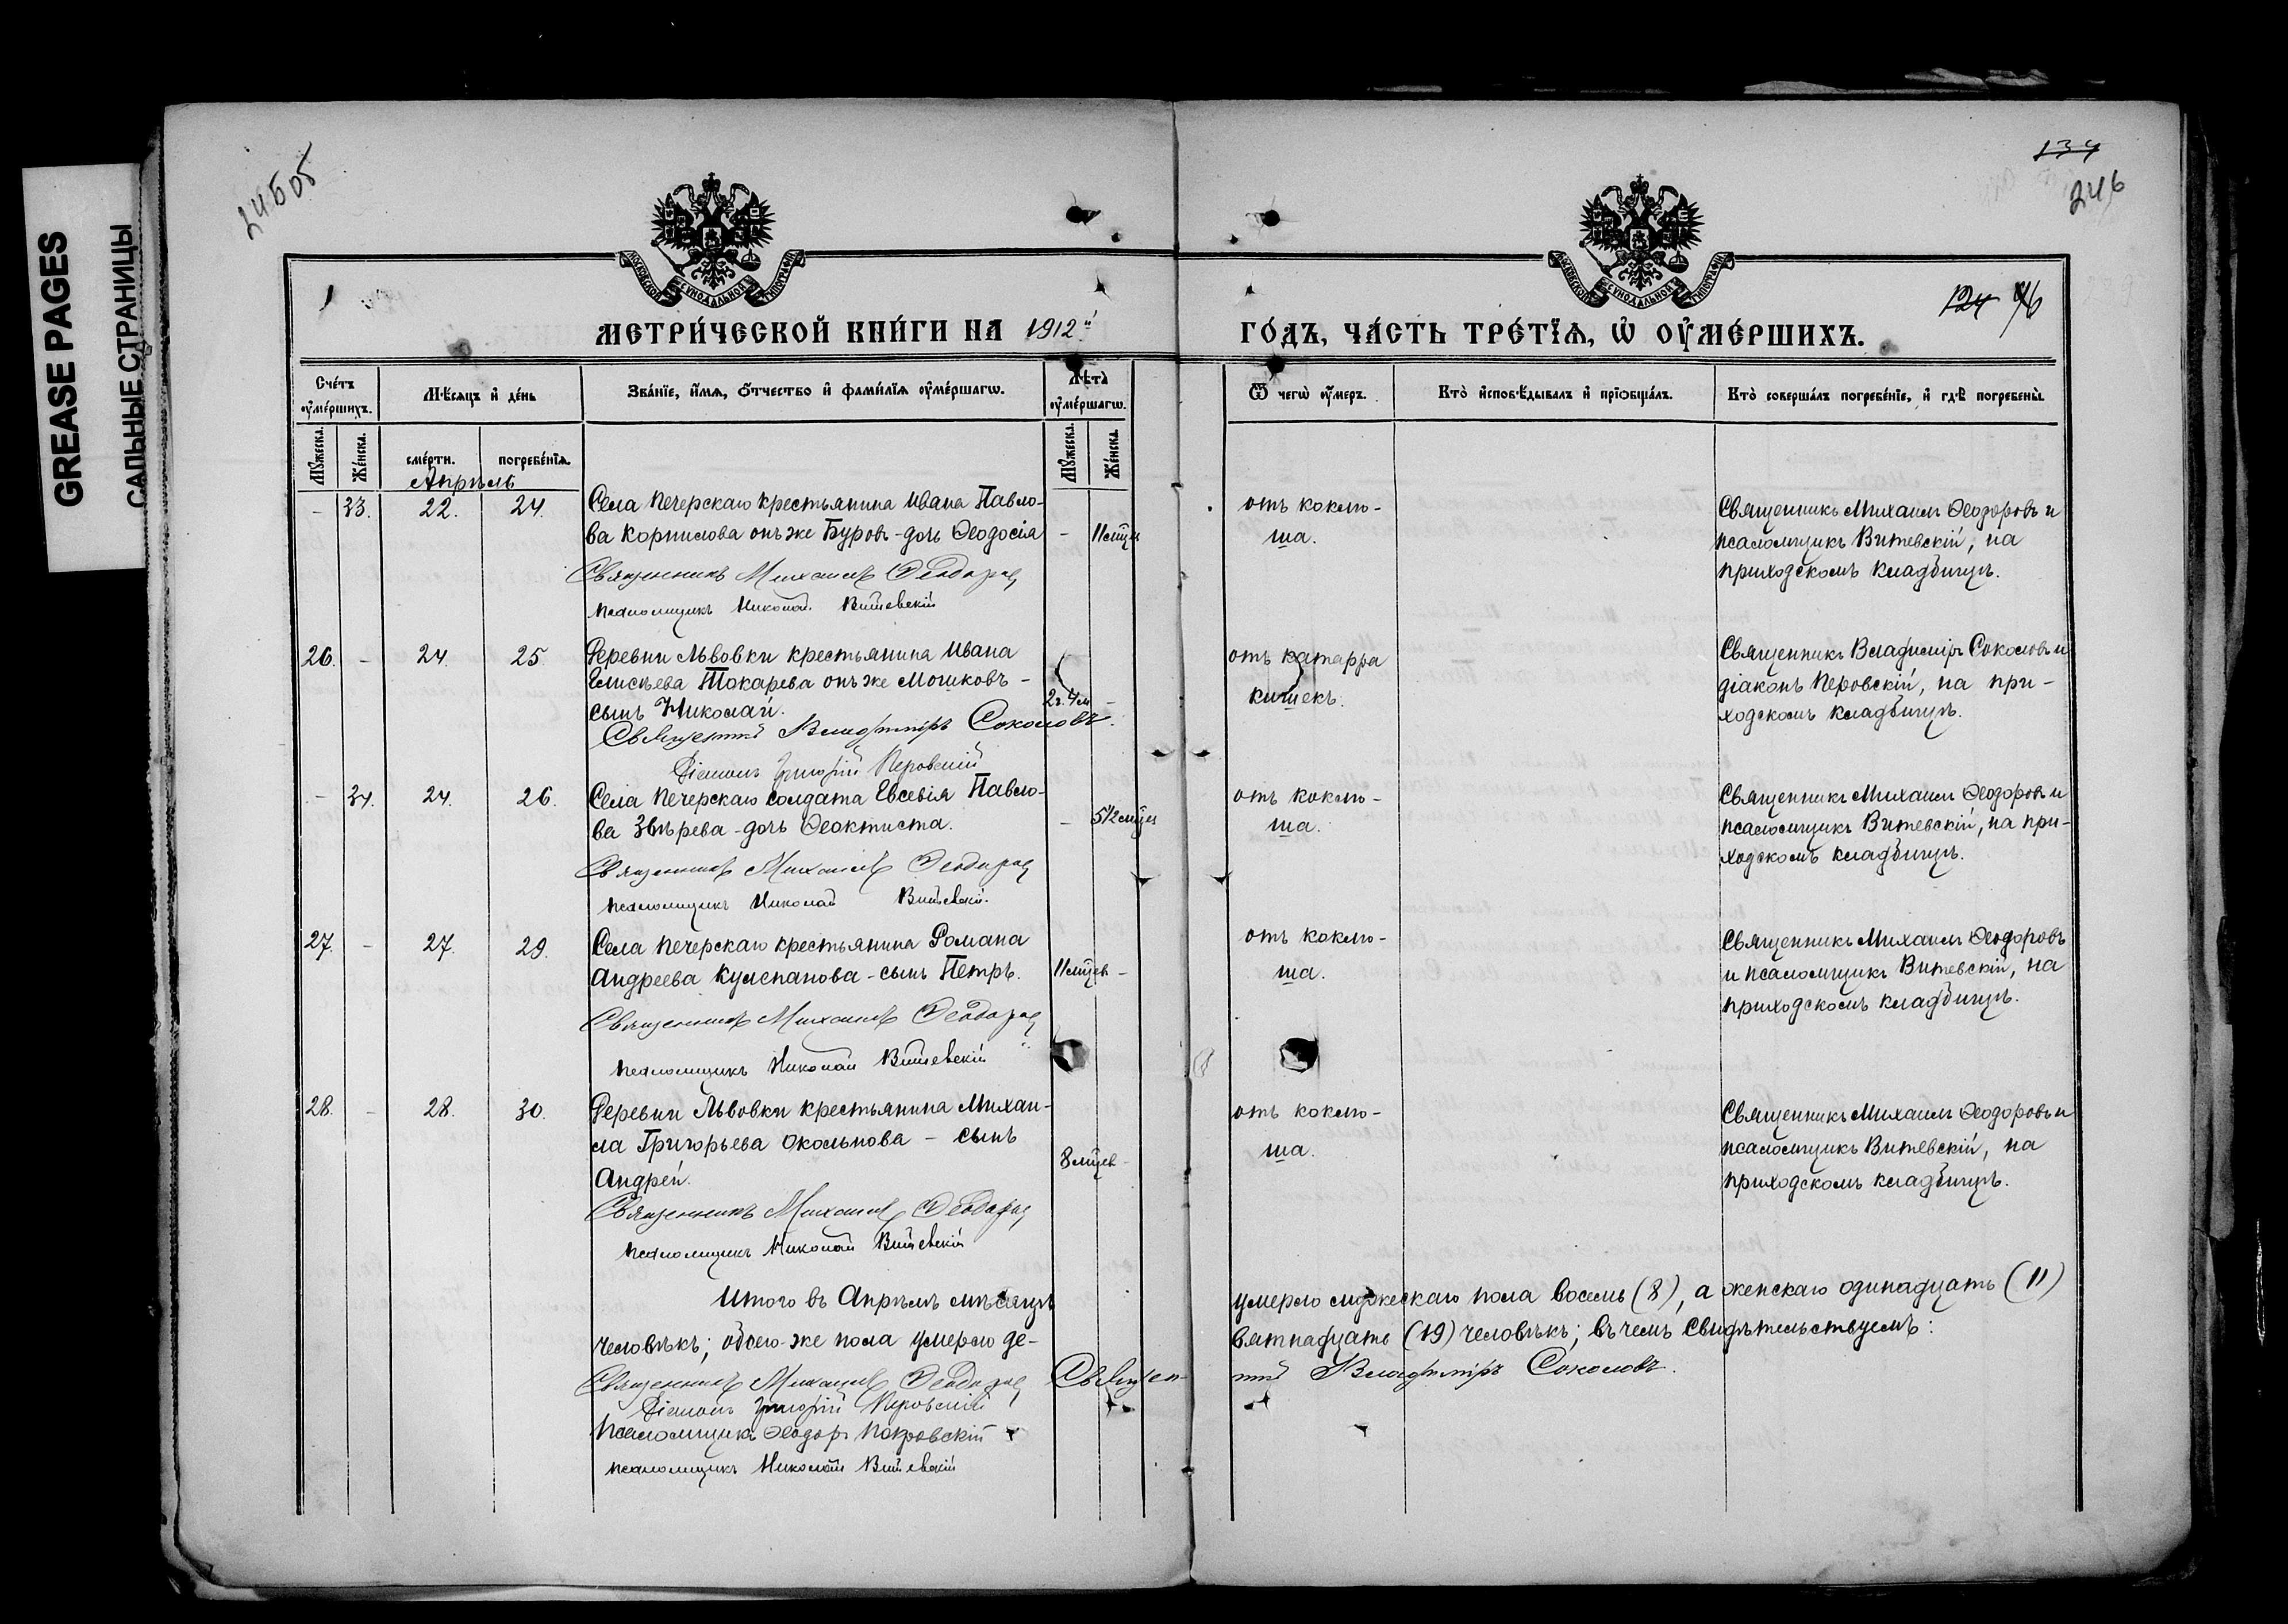 GREASE PAGES
САЛЬНЫЕ СТРАНИЦЫ
246об
134
246
МОСКОВСКОЙ СУНОДАЛЬНОЙ ТИПОГРАФІИ
МОСКОВСКОЙ СУНОДАЛЬНОЙ ТИПОГРАФІИ
МЕТРИ́ЧЕСКОЙ КНИ́ГИ НА 1912й
ГО́ДЪ, ЧА́СТЬ ТРЕ́ТЇѦ, Ѿ ОУ҆МЕ́РШИХЪ.
124
Сче́тъ оу҆ме́ршихъ.
Мѣ́сяцъ и҆ де́нь
Зва́нїе, и҆́мѧ, ѻ҆́тчество и҆ фами́лїѧ оу҆ме́ршагѡ.
Лѣ́та оу҆ме́ршагѡ.
Ѿ чегѡ̀ оу҆́меръ.
Кто̀ и҆сповѣ́дывалъ и҆ прїѻбща́лъ.
Кто̀ соверша́лъ погребе́нїе, и҆ гдѣ̀ погребены̀.
Мꙋ́жеска.
Же́нска.
сме́рти.
погребе́нїѧ.
Мꙋ́жеска.
Же́нска.
Апрѣль
- 33. 22. 24. Села Печерскаго крестьянина Ивана Павло-
ва Корнилова онъ же Буровъ - дочь Ѳеодосія - 11 мѣц
Священникъ Михаилъ Ѳеодоровъ
псаломщикъ Николай Витевскій
отъ коклю-
ша.
Священникъ Михаилъ Ѳеодоровъ и
псаломщикъ Витевскій, на
приходскомъ кладбищѣ.
26. - 24. 25 Деревни Львовки крестьянина Ивана
Елисѣева Токарева онъ же Мошковъ -
сынъ Николай. 2г. 4м -
Священникъ Владиміръ Соколовъ.
Діаконъ Григорій Перовскій
отъ катарра
кишекъ.
Священникъ Владиміръ Соколовъ и
діаконъ Перовскій, на при-
ходскомъ кладбищѣ.
- 34. 24. 26. Села Печерскаго солдата Евсевія Павло-
ва Звѣрева - дочь Ѳеоктиста. - 5 1/2 мѣц
Священникъ Михаилъ Ѳеодоровъ
псаломщикъ Николай Витевскій.
отъ коклю-
ша.
Священникъ Михаилъ Ѳеодоровъ и
псаломщикъ Витевскій, на при-
ходскомъ кладбищѣ.
27. - 27. 29. Села Печерскаго крестьянина Романа
Андреева Кулепанова - сынъ Петръ. 11 мѣцев -
Священникъ Михаилъ Ѳеодоровъ
псаломщикъ Николай Витевскій
отъ коклю-
ша.
Священникъ Михаилъ Ѳеодоровъ
и псаломщикъ Витевскій, на
приходскомъ кладбищѣ.
28. - 28. 30. Деревни Львовки крестьянина Михаи-
ла Григорьева Окольнова - сынъ
Андрей. 8 мѣцев -
Священникъ Михаилъ Ѳеодоровъ
псаломщикъ Николай Витевскій
отъ коклю-
ша.
Священникъ Михаилъ Ѳеодоровъ и
псаломщикъ Витевскій, на
приходскомъ кладбищѣ.
Итого въ Апрѣлѣ мѣсяцѣ умерло мужескаго пола восемь (8), а женскаго одинадцать (11)
человѣкъ; обоего же пола умерло де-вятнадцать (19) человѣкъ; въ чемъ свидѣтельствуемъ:
Священникъ Михаилъ Ѳеодоровъ Священ-никъ Владиміръ Соколовъ.
Діаконъ Григорій Перовскій
Псаломщикъ Ѳеодоръ Покровскій
псаломщикъ Николай Витевскій